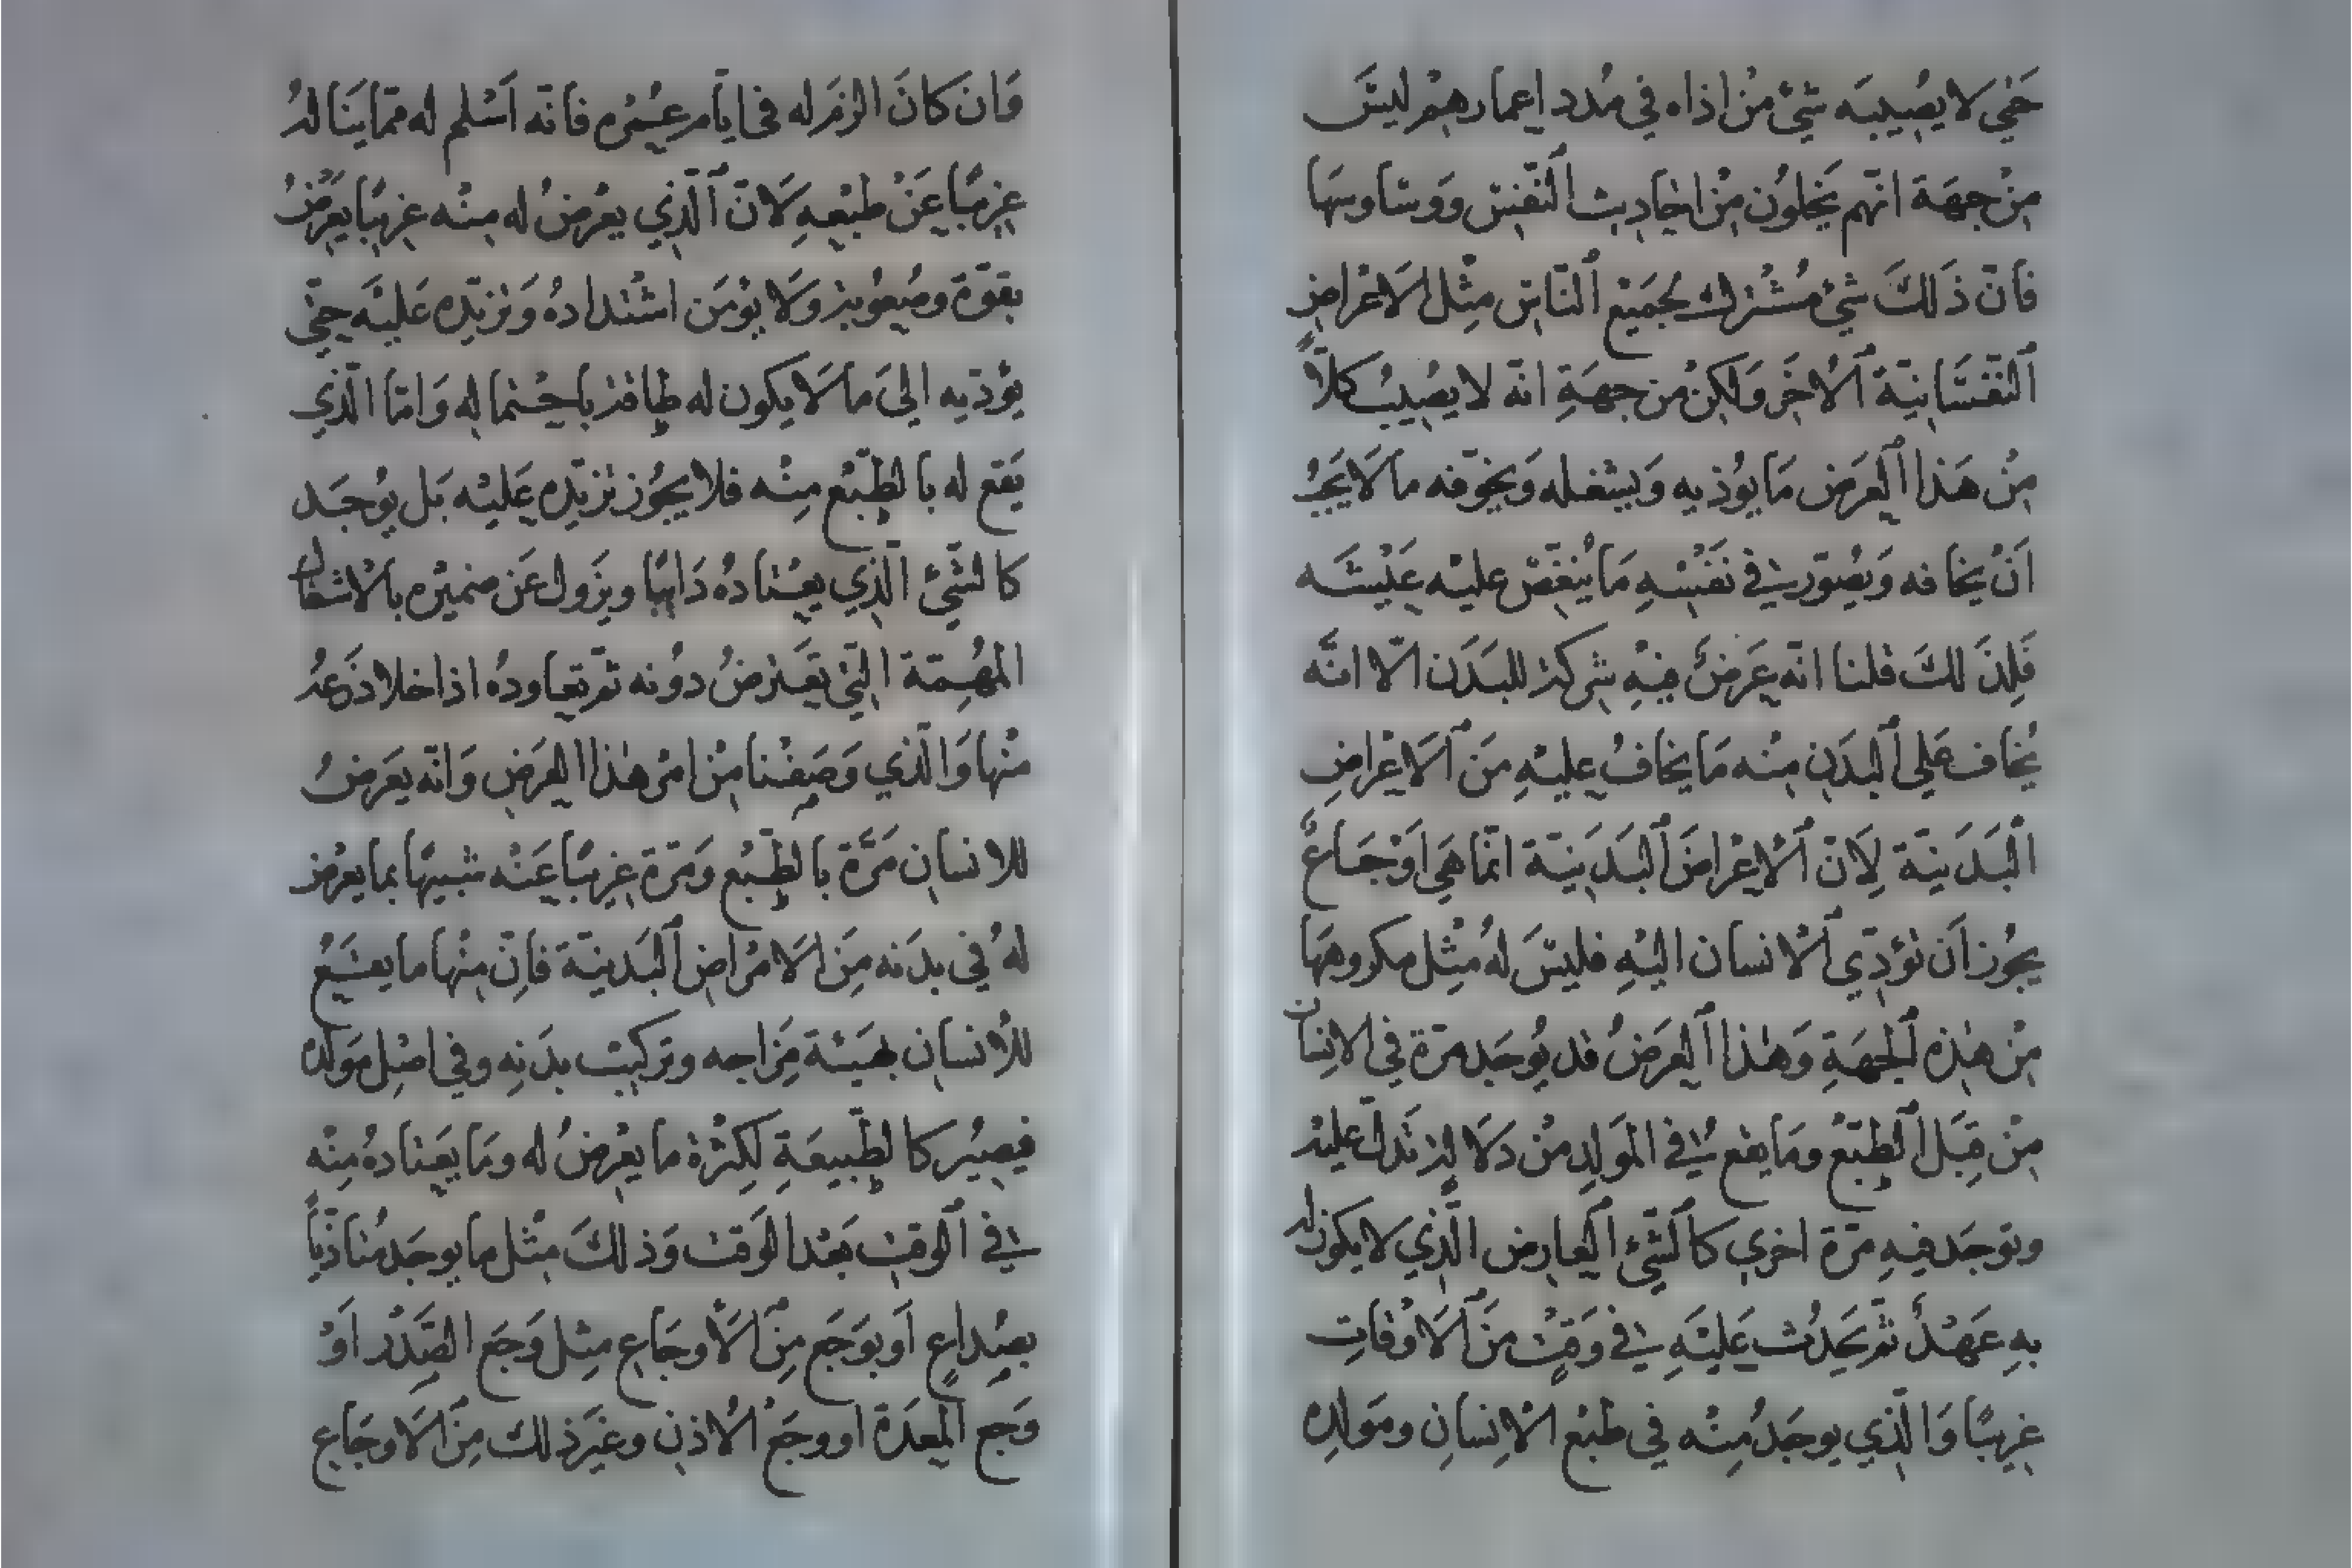 حَتّي لا يصُيبَه شيْ مْن اذاه في مُدد اعمارهمْ ليسَ
مِنْ جهَة انّهم يَخلوُن مْن احَاديث اَلنّفسْ وَوسَاوسهَا
فَانّ ذَلكَ شيْ مشْترك لجميْع اَلنّاس مثْل الاَعْراض
اَلنّفسَانيّة اَلاُخَر وَلكنْ من جهَةِ انّه لا يصُيبُ كلاًّ
مِنْ هَذا اَلعَرَض مَا يوُذيه وَيشْغله وَيخوّفه ما لَا يَجبُ
اَنْ يخافه وَيصُوّر في نَفْسْهِ مَا يُنغّصْ عليْه عَيْشَه
فَلِذَلكَ قلنا انّه عَرَضٌ فيْهِ شركة للبَدَن الّا انّه
يُخاف عَلى اَلبدَن مِنْه مَا يخَافُ عليْهِ مَن اَلاَعْراضِ
اَلبَدَنيّة لِاَنّ اَلاْعْراضَ اَلبَدَنيّة انّما هَي اَوْجَاعٌ
يجُوز اَن توُدّي اَلاْنسان اليْهِ فليْسَ لهُ مثْل مكروههَا
مِنْ هٰذه اَلجْهَةِ وَهٰذا اَلعَرَضُ قد يوُجَد مرّة في الانِسان
مِنْ قِبَل اَلطّبْع ومَا يقع في الموَلِد منْ دَلَالة تَدلّ عليه
وتوجَد فيهِ مرّة اخري كاَلشّيْ اَلعَارض الّذي لا يكون له
بهِ عَهْدٌ ثمّ يَحدُث عَليْهِ في وَقتْ مَن اَلاَوْقاتِ
غريبًا وَالّذي يوجَدُ مِنْه في طبْع الاْنِسانِ ومَولدِه
وَان كانَ الزمَ له في ايّام عمُرْه فانّه اَسْلم له ممّا يَنَاله
غريبًا عَنْ طبْعهِ لَانّ اَلّذي يعْرضُ له مِنْه غريبًا يعَرْضُ
بقوّة وصعُوبة وَلا يوُمَن اشتْدادهُ وَتزيّده عَليْه حتّي
يؤدّيه اليَ ما لَا يكون له طاقة باحتْمالِه وَامّا الّذي
يَقع له بالطّبْع مِنْه فلا يجوُز تزيّده عَليْه بَل يوُجَد
كالشّيْ الّذي يعتْادهُ دَايبًا ويزَول عَن ضميْره بالاْشغال
المهُمّة الّتي تعَترضُ دوُنه ثمّ تعاودهُ اذا خلا ذَرعهُ
منْها وَالّذي وَصَفْنا مْن امرْ هٰذا العَرَض وَانّه يعَرضُ
للانسان مَرّة بالطّبْع وَمَرّة غريبًا عَنْه شبيهًا بما يعرْض
لهُ في بدَنه مِنَ الاَمْراض اَلبَدنيّة فاِنّ منْها ما يقَعُ
للاُنسان بهيَئة مزَاجه وتركيبْ بدَنِه وفي اصْل مَولده
فيصيُر كالطّبيعَةِ لكثْرة ما يعْرضُ له ومَا يعَتادهُ مِنْه
في اَلوقت بَعْد الوَقت وَذلكَ مثْل ما يوجَد مُتاذّيًا
بصُداعٍ اَو بوَجَع مِن اَلاَوجَاعِ مِثل وَجَع الصّدْر اَوْ
وَجع المعدَة او وجَعُ الاُذن وغيَر ذلك مِن اَلاَوجَاعِ